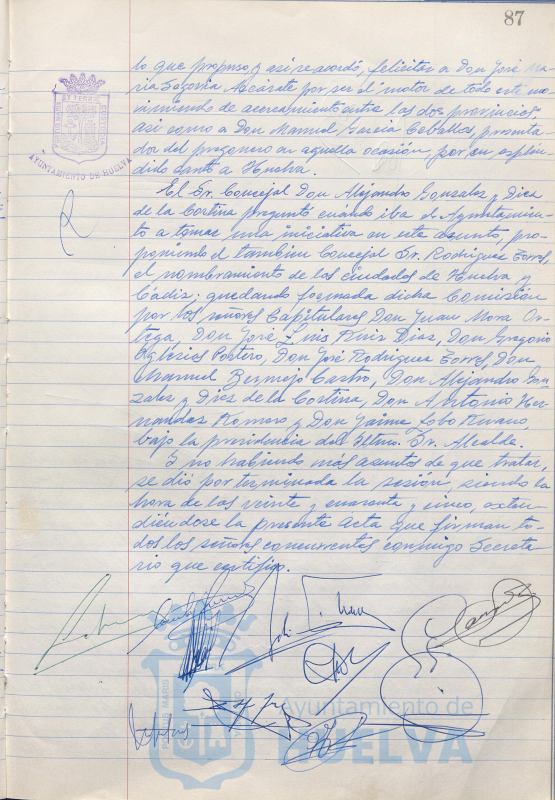 87
lo que propuso, y así se acordó, felicitar a Don José Ma-
ría Segovia Azcárate por ser el motor de todo este mo-
vimiento de acercamiento entre las dos provincias
así como a Don Manuel García Ceballos, presenta
dor del pregonero en aquella ocasión, por su esplén
dido canto a Huelva.
AYUNTAMIENTO DE HUELVA
El Sr. Concejal Don Alejandro Gonzalez y Diez
de la Cortina preguntó cuándo iba el Ayuntamien-
to a tomar una iniciativa en este asunto, pro-
poniendo el también Concejal Sr. Rodríguez Torres,
el nombramiento de las ciudades de Huelva y
Cádiz; quedando formada dicha Comisión
por los señores Capitulares Don Juan Mora Or-
tega, Don José Luis Ruiz Díaz, Don Gregorio
Iglesias Portero, Don José Rodríguez Torres, Don
Manuel Bermejo Castro, Don Alejandro Gon
zalez y Diez de la Cortina, Don Antonio Her-
nandez Romero y Don Jaime Lobo
bajo la presidencia del Iltmo. Sr. Alcalde.
Y no habiendo más asuntos de que tratar,
se dió por terminada la sesión, siendo la
hora de las veinte y cuarenta y cinco, exten-
diéndose la presente acta que firman to-
dos los señores concurrentes conmigo Secreta
rio que certifico.
PORTUS MARIS
Ayuntamiento de
HUELVA